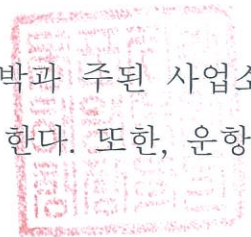 박과 주된 사업소
한다. 또한, 운항